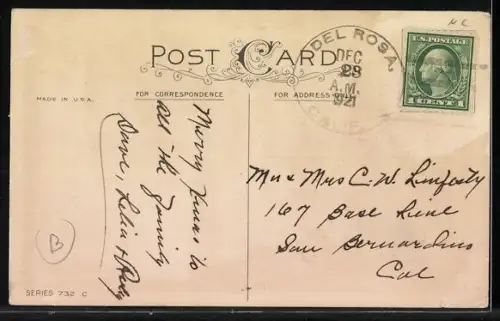 POST CARD
MADE IN U.S.A.
FOR CORRESPONDENCE
FOR ADDRESS
DEL ROSA,
DEC
28
A.M.
1921
CALIF.
U.S. POSTAGE
1 CENT 1
Merry Xmas to
all the Family
Dave, Lelia &
Mr & Mrs C. W.
167 Base Line
San Bernardino
Cal
B
SERIES 732 C